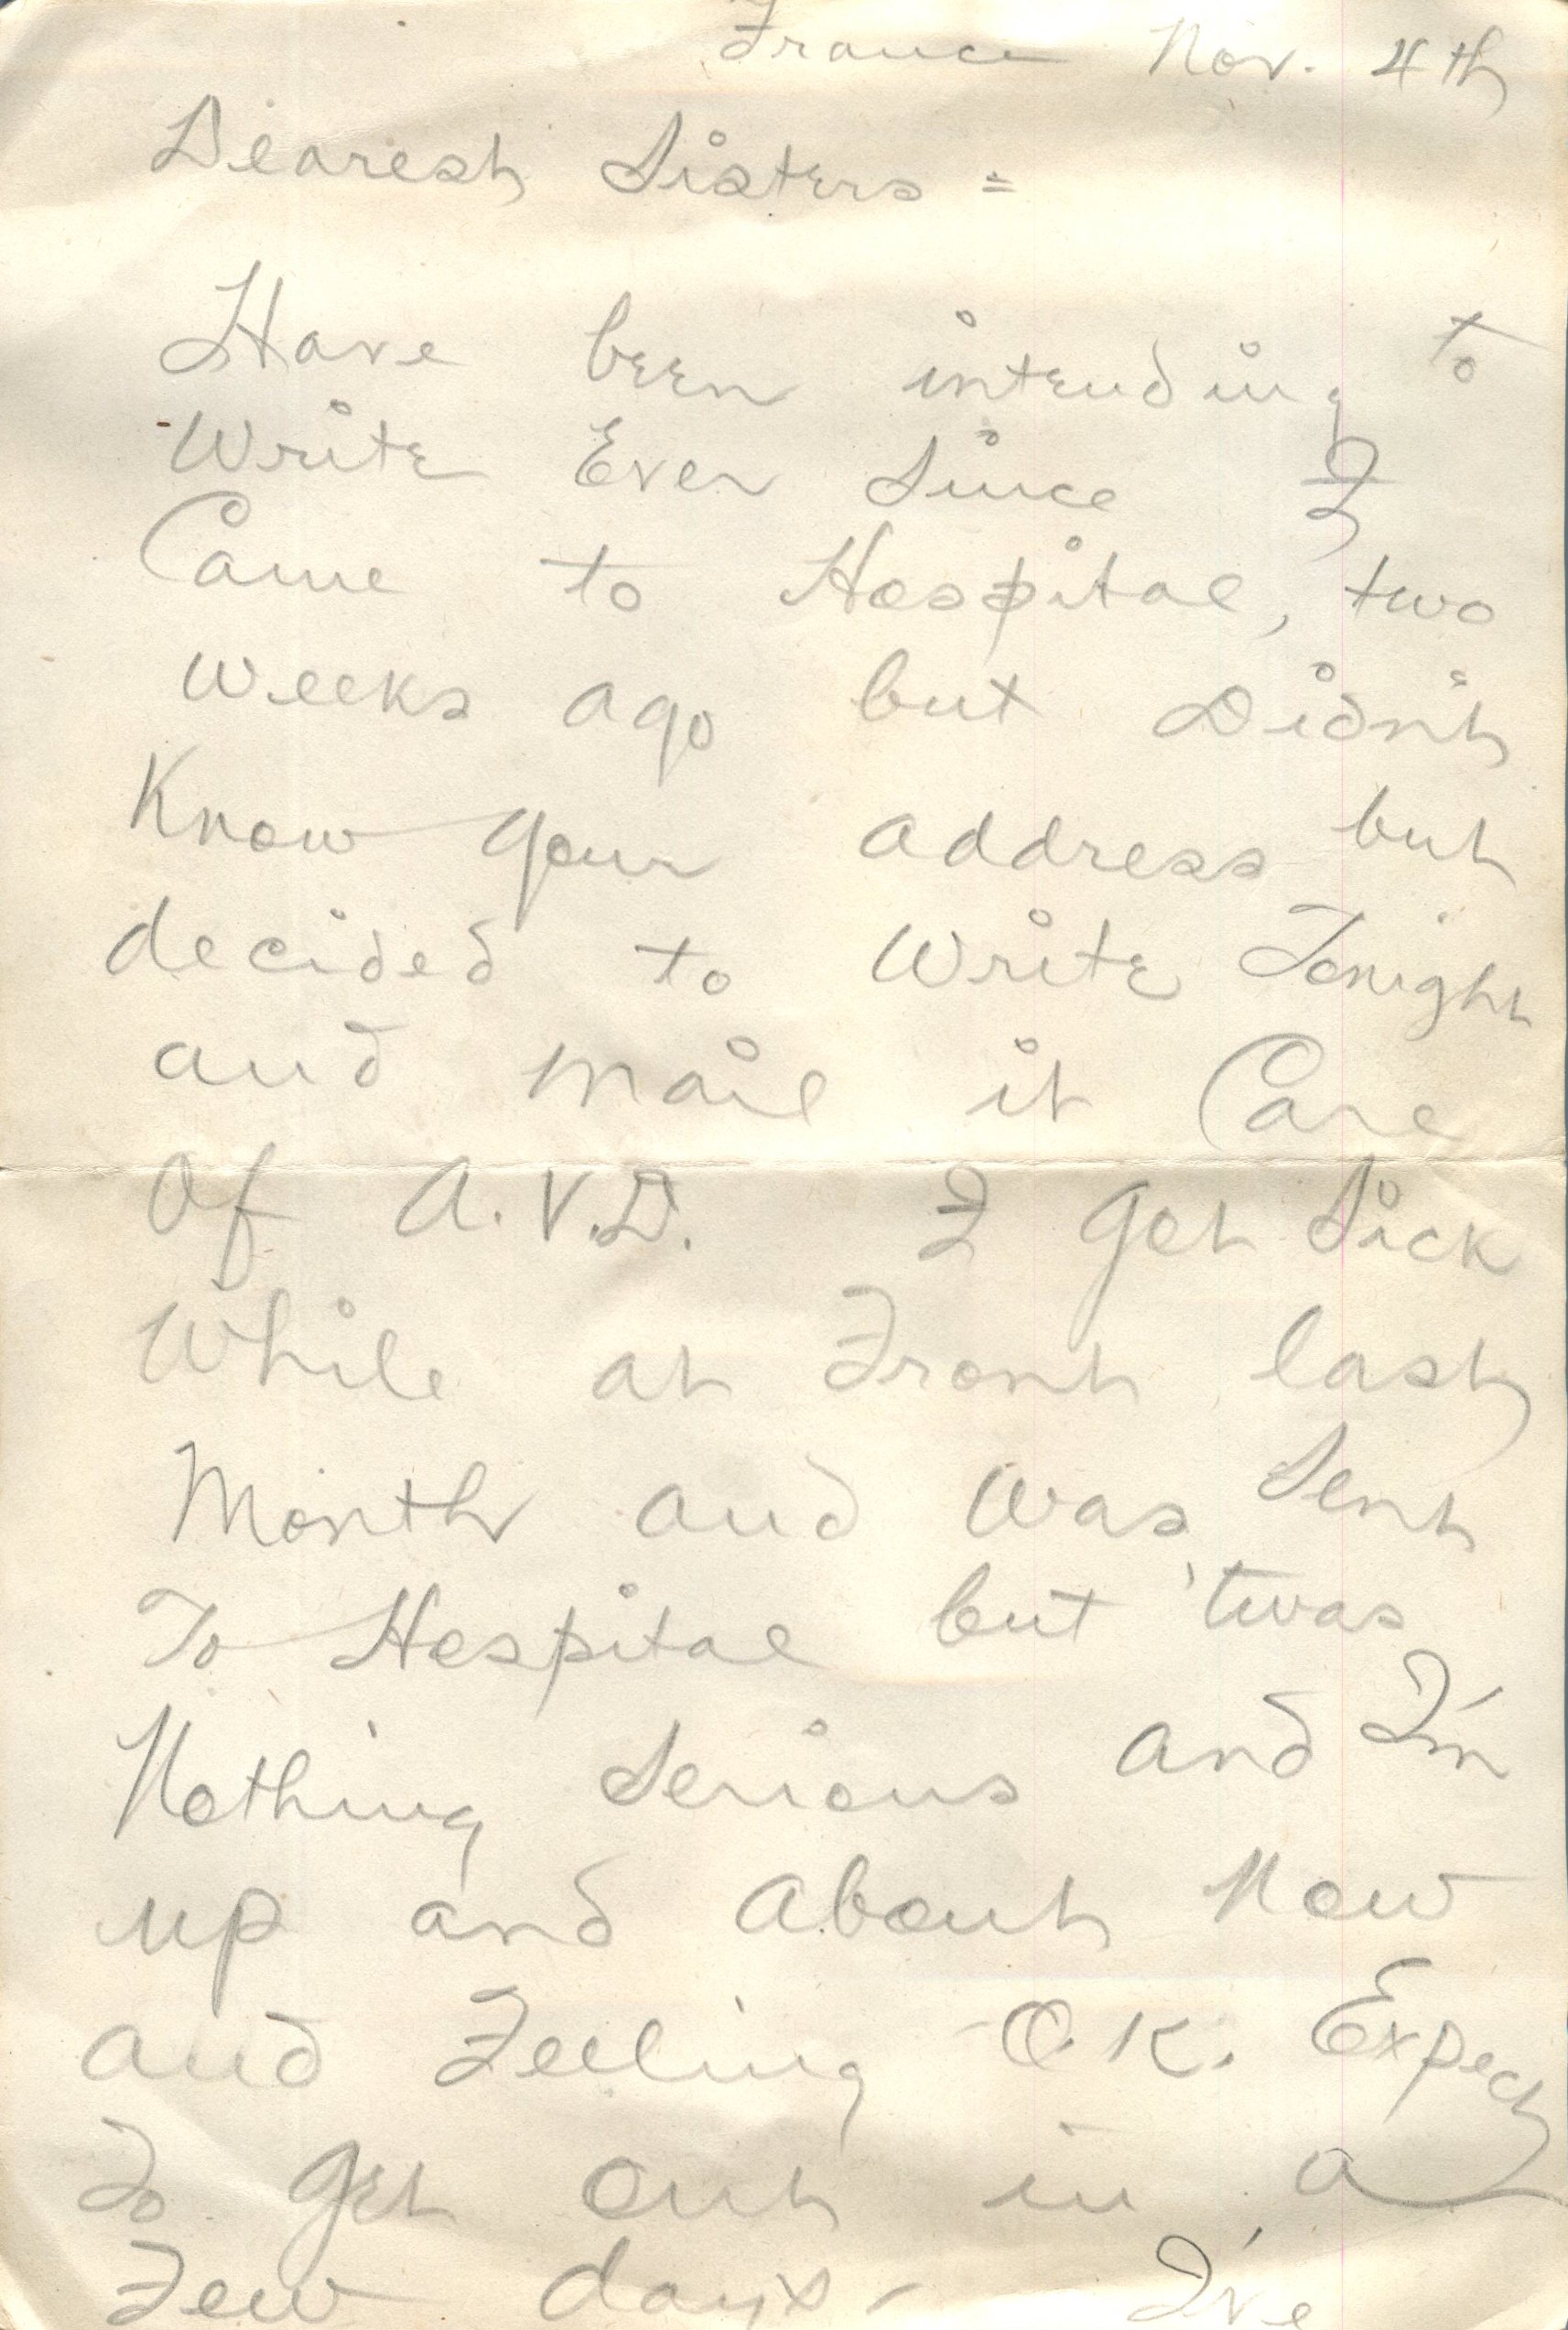 France Nov. 4th
Dearest Sisters =
Have been intending to
Write Ever Since I
Came to Hospital, two
weeks ago but Didn't
Know your address but
decided to Write Tonight
and mail it Care
Of A.V.D. I got Sick
While at Front last
Month and Was Sent
To Hospital but 'twas
Nothing Serious and I'm
up and About Now
and Feeling O.K. Expect
To get out in a
Few days - I've